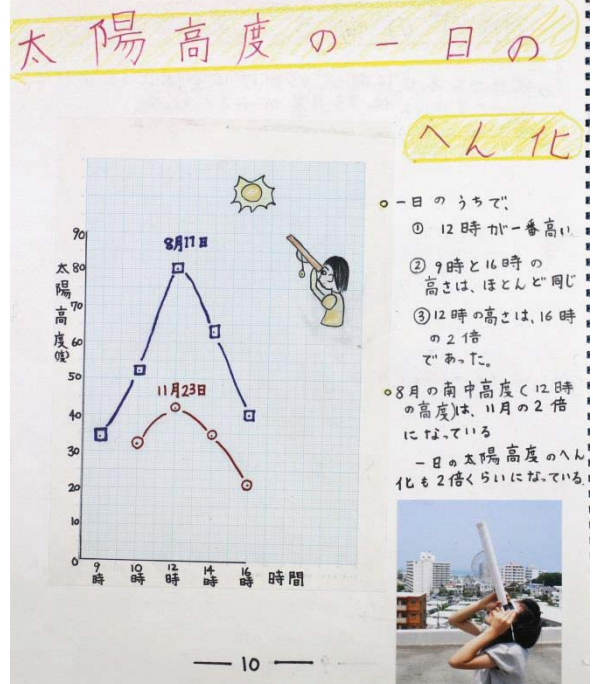 太陽高度の一日の
へん化
90
80
70
60
50
40
30
20
10
0
太陽高度(度)
8月17日
11月23日
9時
10時
12時
14時
16時
時間
○一日のうちで、
① 12時が一番高い
② 9時と16時の
高さは、ほとんど同じ
③12時の高さは、16時
の2倍
であった。
○8月の南中高度(12時
の高度)は、11月の2倍
になっている
一日の太陽高度のへん
化も2倍くらいになっている
— 10 —